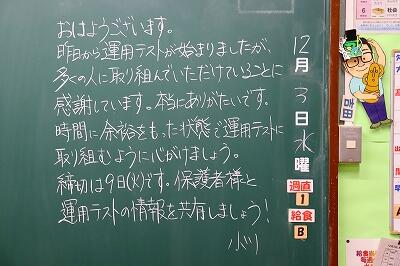 おはようございます。
昨日から運用テストが始まりましたが、
多くの人に取り組んでいただけていることに
感謝しています。本当にありがたいです。
時間に余裕をもった状態で運用テストに
取り組むように心がけましょう。
締切は9日(火)です。保護者様と
運用テストの情報を共有しましょう!
小川
12
月
3
日
水
曜
週直
1
給食
B
吉田
社会